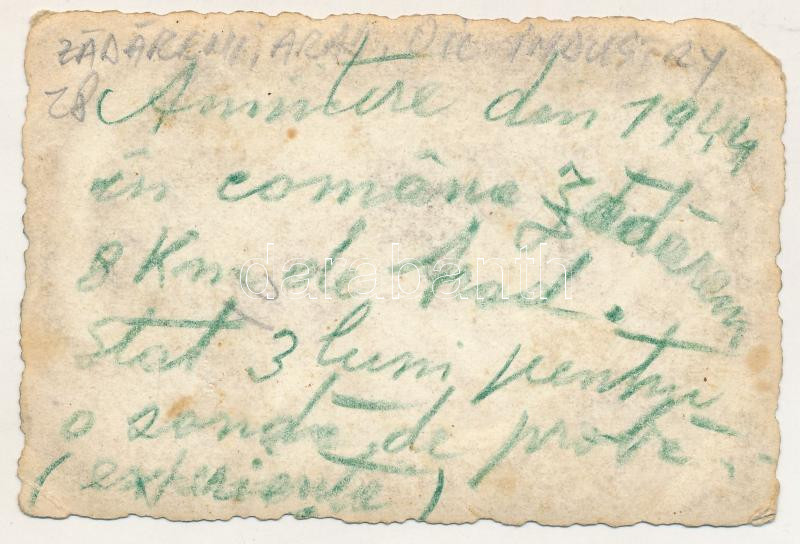 ZĂDĂRENI, ARAD, OIL INDUSTRY
Z8
Amintire den 1944
in comăna Zădăreni
8 Km de Arad.
Stat 3 luni pentru
o sondă de probă.
(experiențe)
darabanth